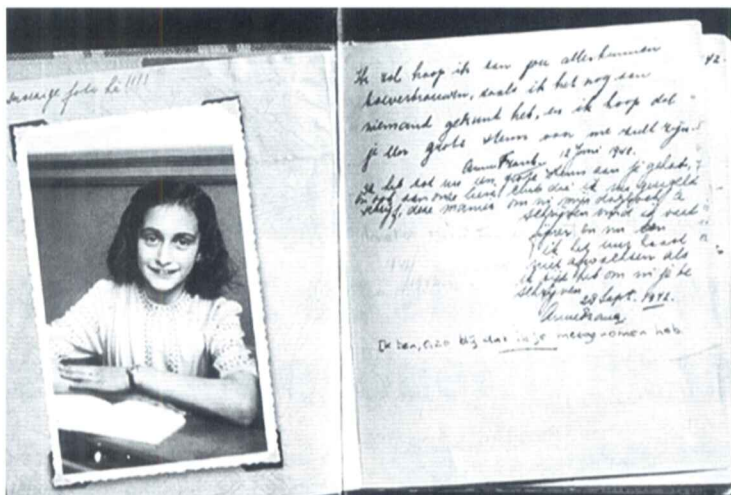 foto hè!!!!
Ik zal hoop ik aan jou alles kunnen
toevertrouwen, zoals ik het nog aan
niemand gekund heb, en ik hoop dat
je een grote steun voor me zult zijn.
Anne Frank 12 Juni 1942.
Ik heb tot nu een grote steun aan je gehad,
en ook aan onze lieve club die ik nu geregeld
schrijf, deze manier om in mijn dagboek te
schrijven vind ik veel
fijner en nu kan
ik het uur haast
niet afwachten als
ik tijd heb om in je te
schrijven
28 Sept. 1942.
Anne Frank
Ik ben, o, zo blij dat ik je meegenomen heb.
42.